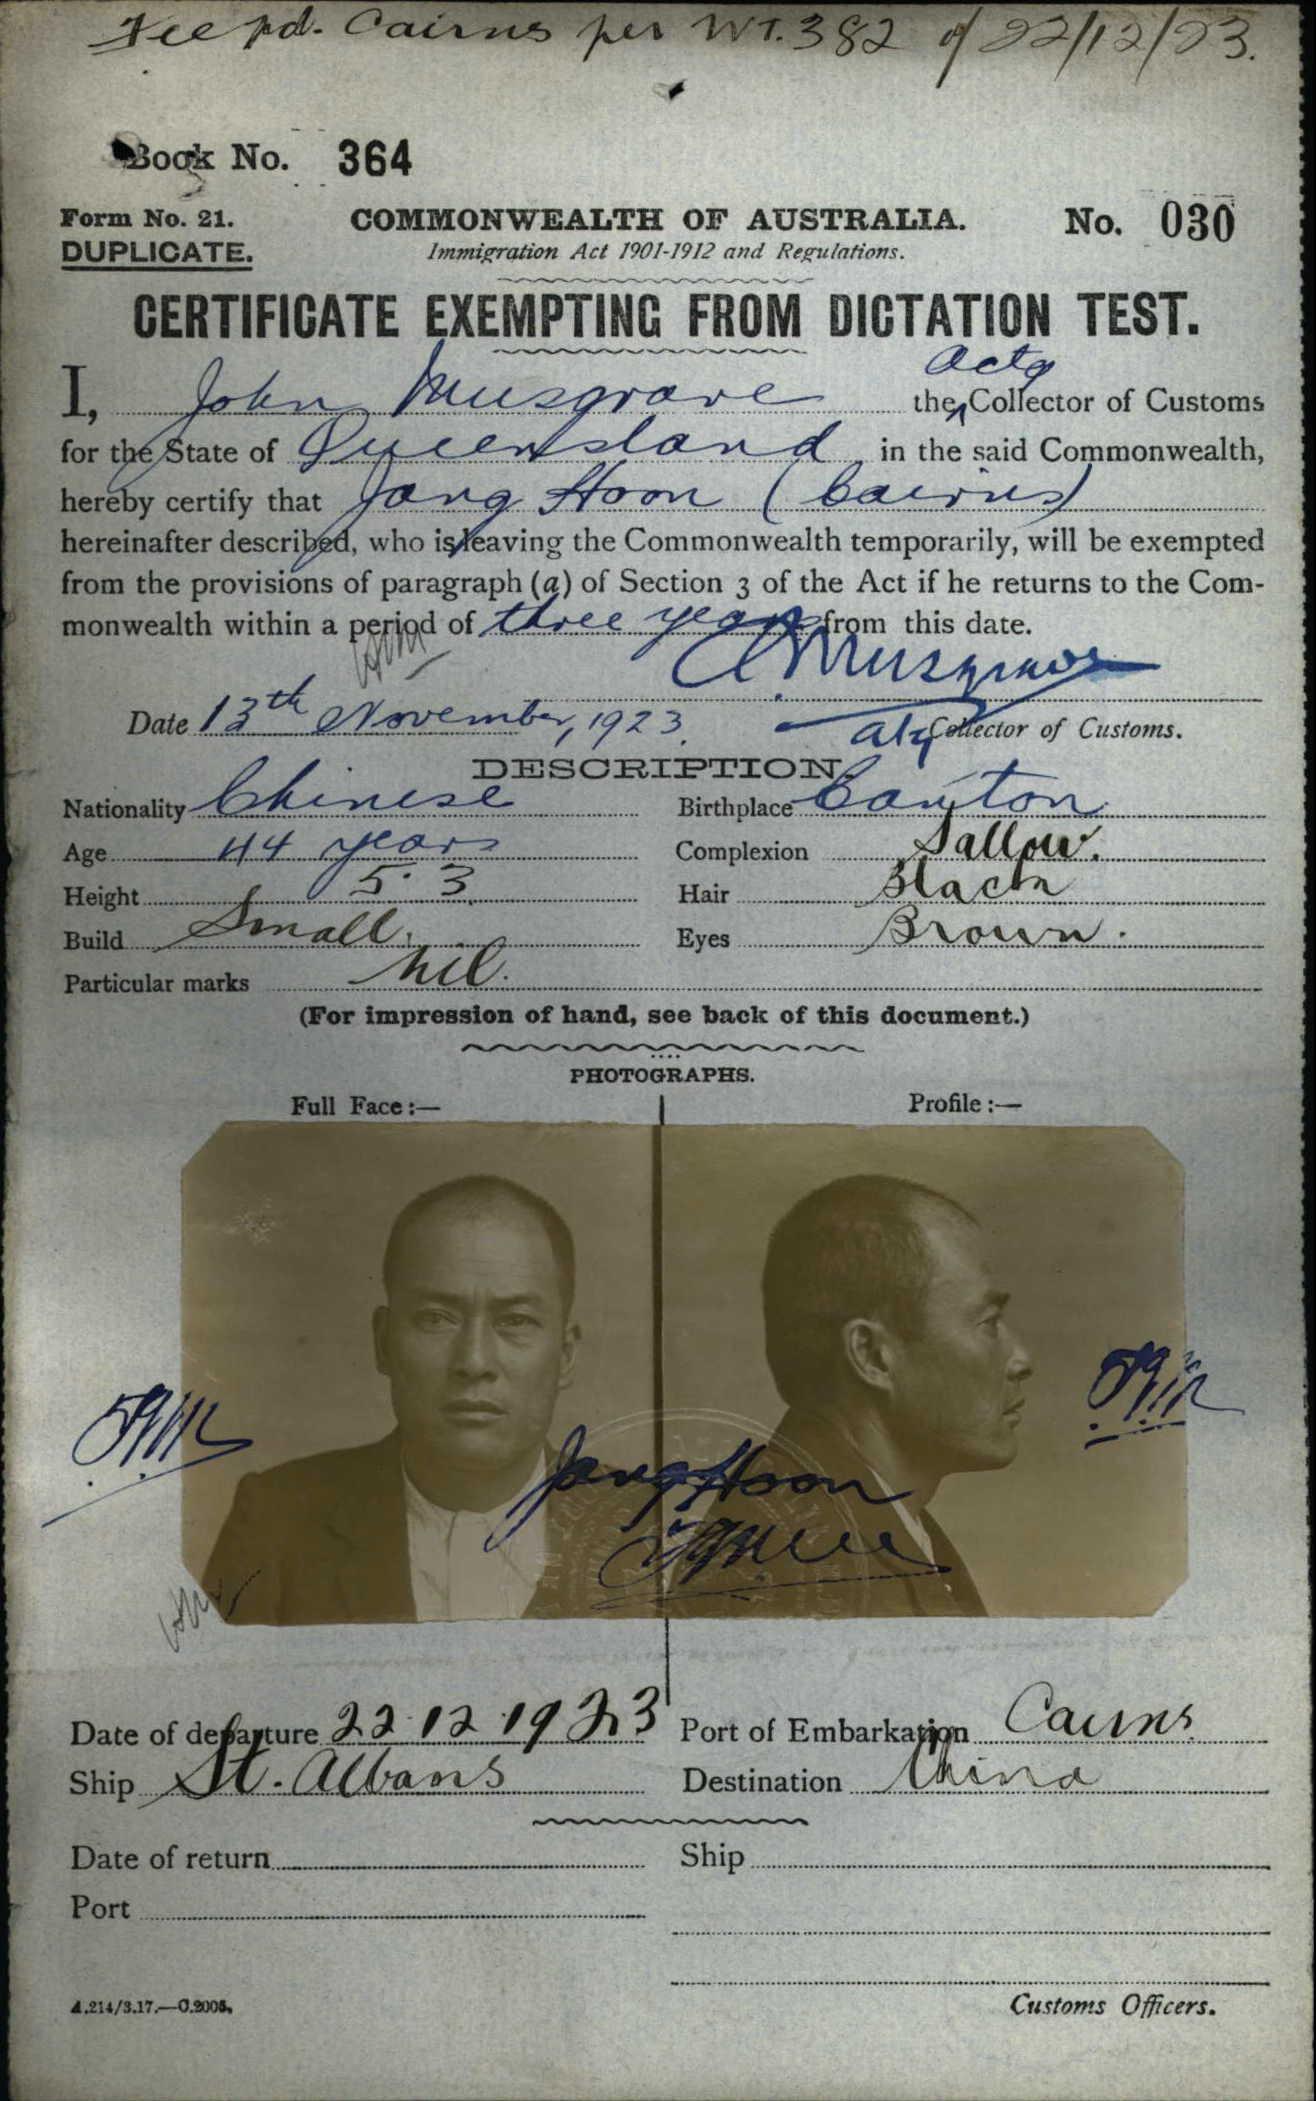 Fee pd. Cairns per WT. 382 of 22/12/23.
Book No. 364
Form No. 21. COMMONWEALTH OF AUSTRALIA. No. 030
DUPLICATE. Immigration Act 1901-1912 and Regulations.
CERTIFICATE EXEMPTING FROM DICTATION TEST.
Actg
I, John Musgrave the Collector of Customs
for the State of Queensland in the said Commonwealth,
hereby certify that Jang Hoon (Cairns)
hereinafter described, who is leaving the Commonwealth temporarily, will be exempted
from the provisions of paragraph (a) of Section 3 of the Act if he returns to the Com-
monwealth within a period of three years from this date.
Musgrave
Date 13th November, 1923. Collector of Customs.
DESCRIPTION.
Nationality Chinese Birthplace Canton
Age 44 years Complexion Sallow.
Height 5. 3 Hair Black
Build Small. Eyes Brown.
Particular marks nil.
(For impression of hand, see back of this document.)
PHOTOGRAPHS.
Full Face:— Profile:—
Jang Hoon
Date of departure 22.12.1923 Port of Embarkation Cairns
Ship St. Albans Destination China
Date of return Ship
Port
A.214/3.17.—C.2005. Customs Officers.